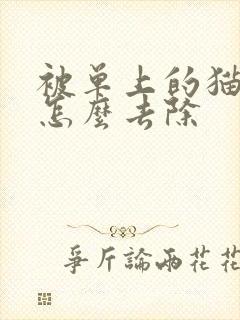 被单上的猫
怎麼去除
爭斤論兩花花